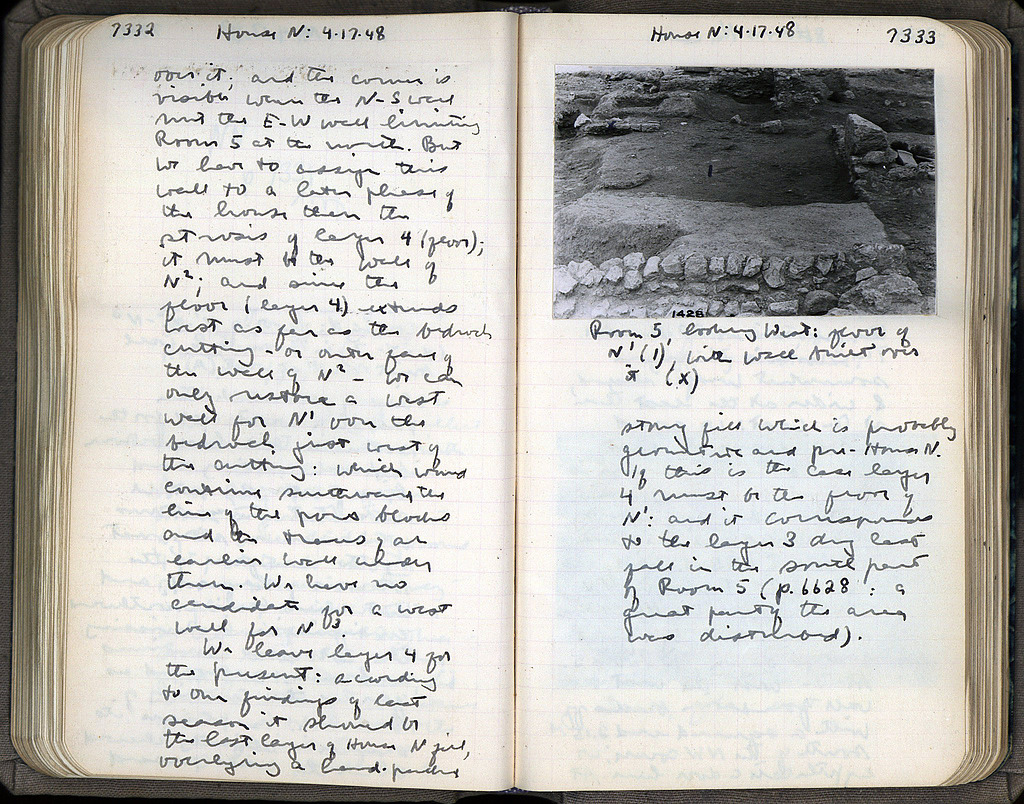 7332 House N: 4.17.48
over it, and the corner is
visible where the N-S wall
met the E-W wall limiting
Room 5 at the north. But
we have to assign this
wall to a later phase of
the house than the
strosis of layer 4 (floor);
it must be the wall of
N²; and since the
floor (layer 4) extends
West as far as the bedrock
cutting - or outer face of
the wall of N² - we can
only restore a west
wall for N' over the
bedrock just west of
the cutting: which would
continue southward the
line of the poros blocks
and the traces of an
earlier wall under
them. We have no
candidate for a west
wall for N³.
We leave layer 4 for
the present: according
to our findings of last
season it should be
the last layer of House N fill,
overlying a hand-packed
House N: 4.17.48 7333
1428
Room 5, looking West: floor of
N' (1), with wall built over
it (X)
stony fill which is probably
geometric and pre-House N.
If this is the case layer
4 must be the floor of
N': and it corresponds
to the layer 3 dug last
fall in the south part
of Room 5 (p. 6628: a
great part of the area
was disturbed).